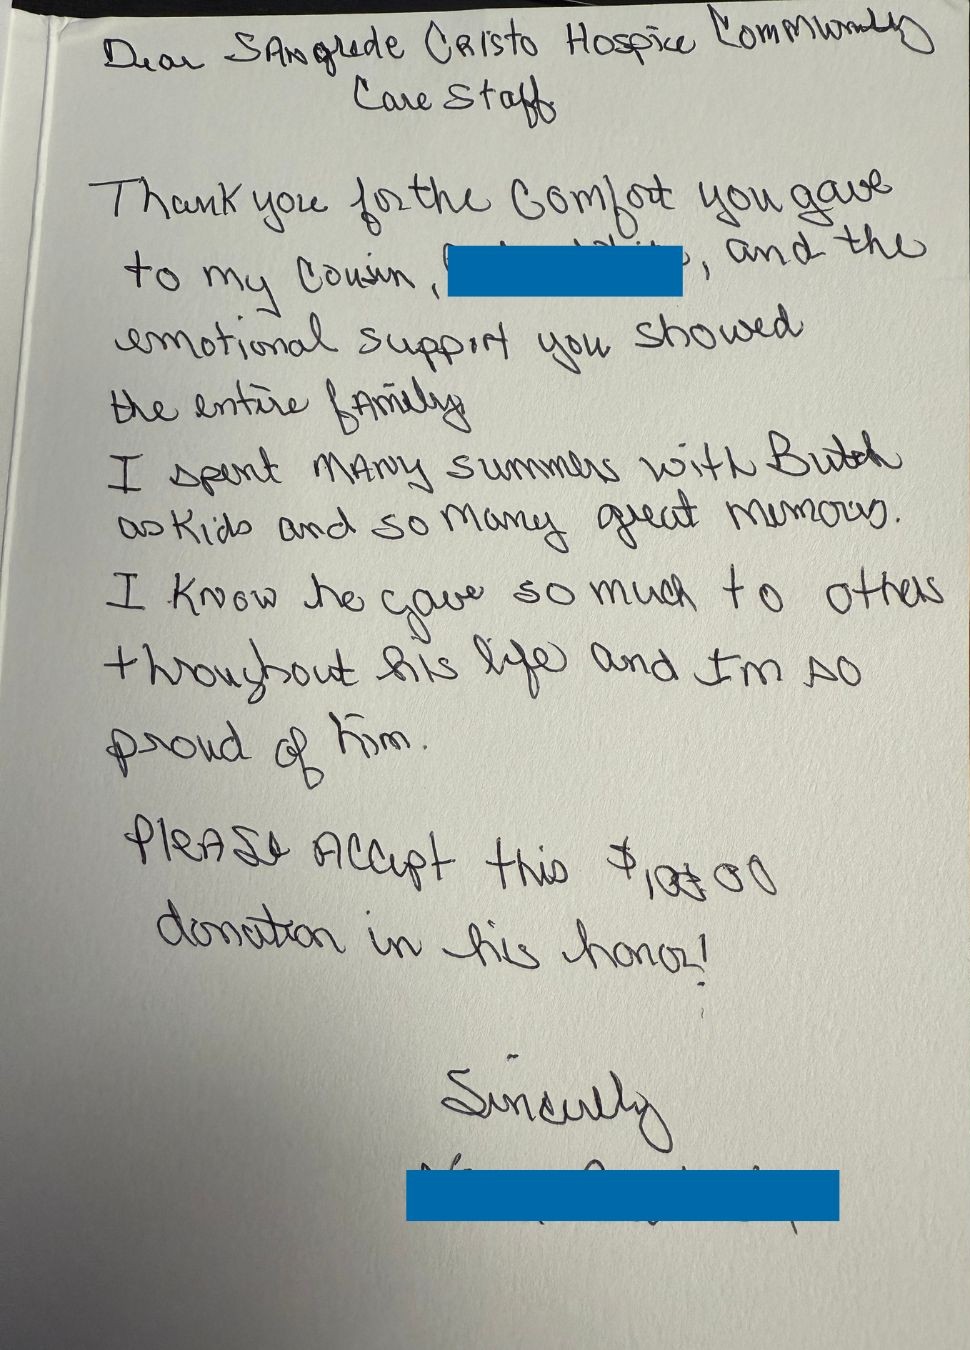 Dear SAngrede Cristo Hospice Community
Care Staff
Thank you for the Comfort you gave
to my Cousin, , and the
emotional support you showed
the entire family
I spent MANy summers with Butch
as Kids and so many great memories.
I know he gave so much to others
throughout his life and I'm so
proud of him.
PleASe Accept this $
donation in his honor!
Sincerely